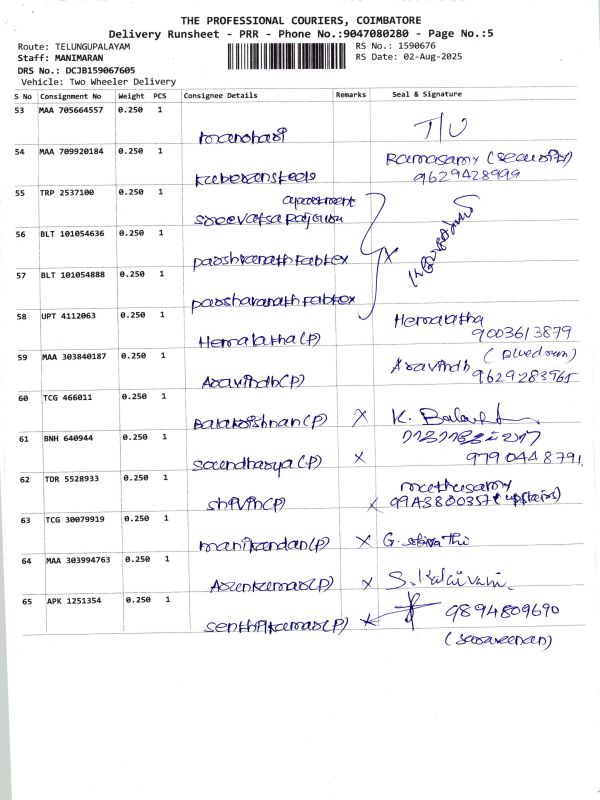 THE PROFESSIONAL COURIERS, COIMBATORE
Delivery Runsheet - PRR - Phone No.:9047080280 - Page No.:5
Route: TELUNGUPALAYAM
Staff: MANIMARAN
DRS No.: DCJB159067605
Vehicle: Two Wheeler Delivery
RS No.: 1590676
RS Date: 02-Aug-2025
S No Consignment No Weight PCS Consignee Details Remarks Seal & Signature
53 MAA 705664557 0.250 1
manohari T/U
54 MAA 709920184 0.250 1 Ramasamy (security)
kuberansteels 9629428999
55 TRP 2537100 0.250 1 apartment
sreevatsa
56 BLT 101054636 0.250 1
parshvanath fabtex x
57 BLT 101054888 0.250 1
parshavanath fabtex
58 UPT 4112063 0.250 1 Hemalatha
Hemalatha(P) 9003613879
59 MAA 303840187 0.250 1 Aravindh
Aravindh(P) 9629283965
60 TCG 466011 0.250 1
Balakrishnan(P) x K.
61 BNH 640944 0.250 1
soundharya(P) x 9790448791
62 TDR 5528933 0.250 1 muthusamy
(P) x (upstairs)
63 TCG 30079919 0.250 1
manikandan(P) x G.
64 MAA 303994763 0.250 1
Arunkumar(P) x S. Kalaivani.
65 APK 1251354 0.250 1 9894809690
senthilkumar(P) x
(saraveenan)